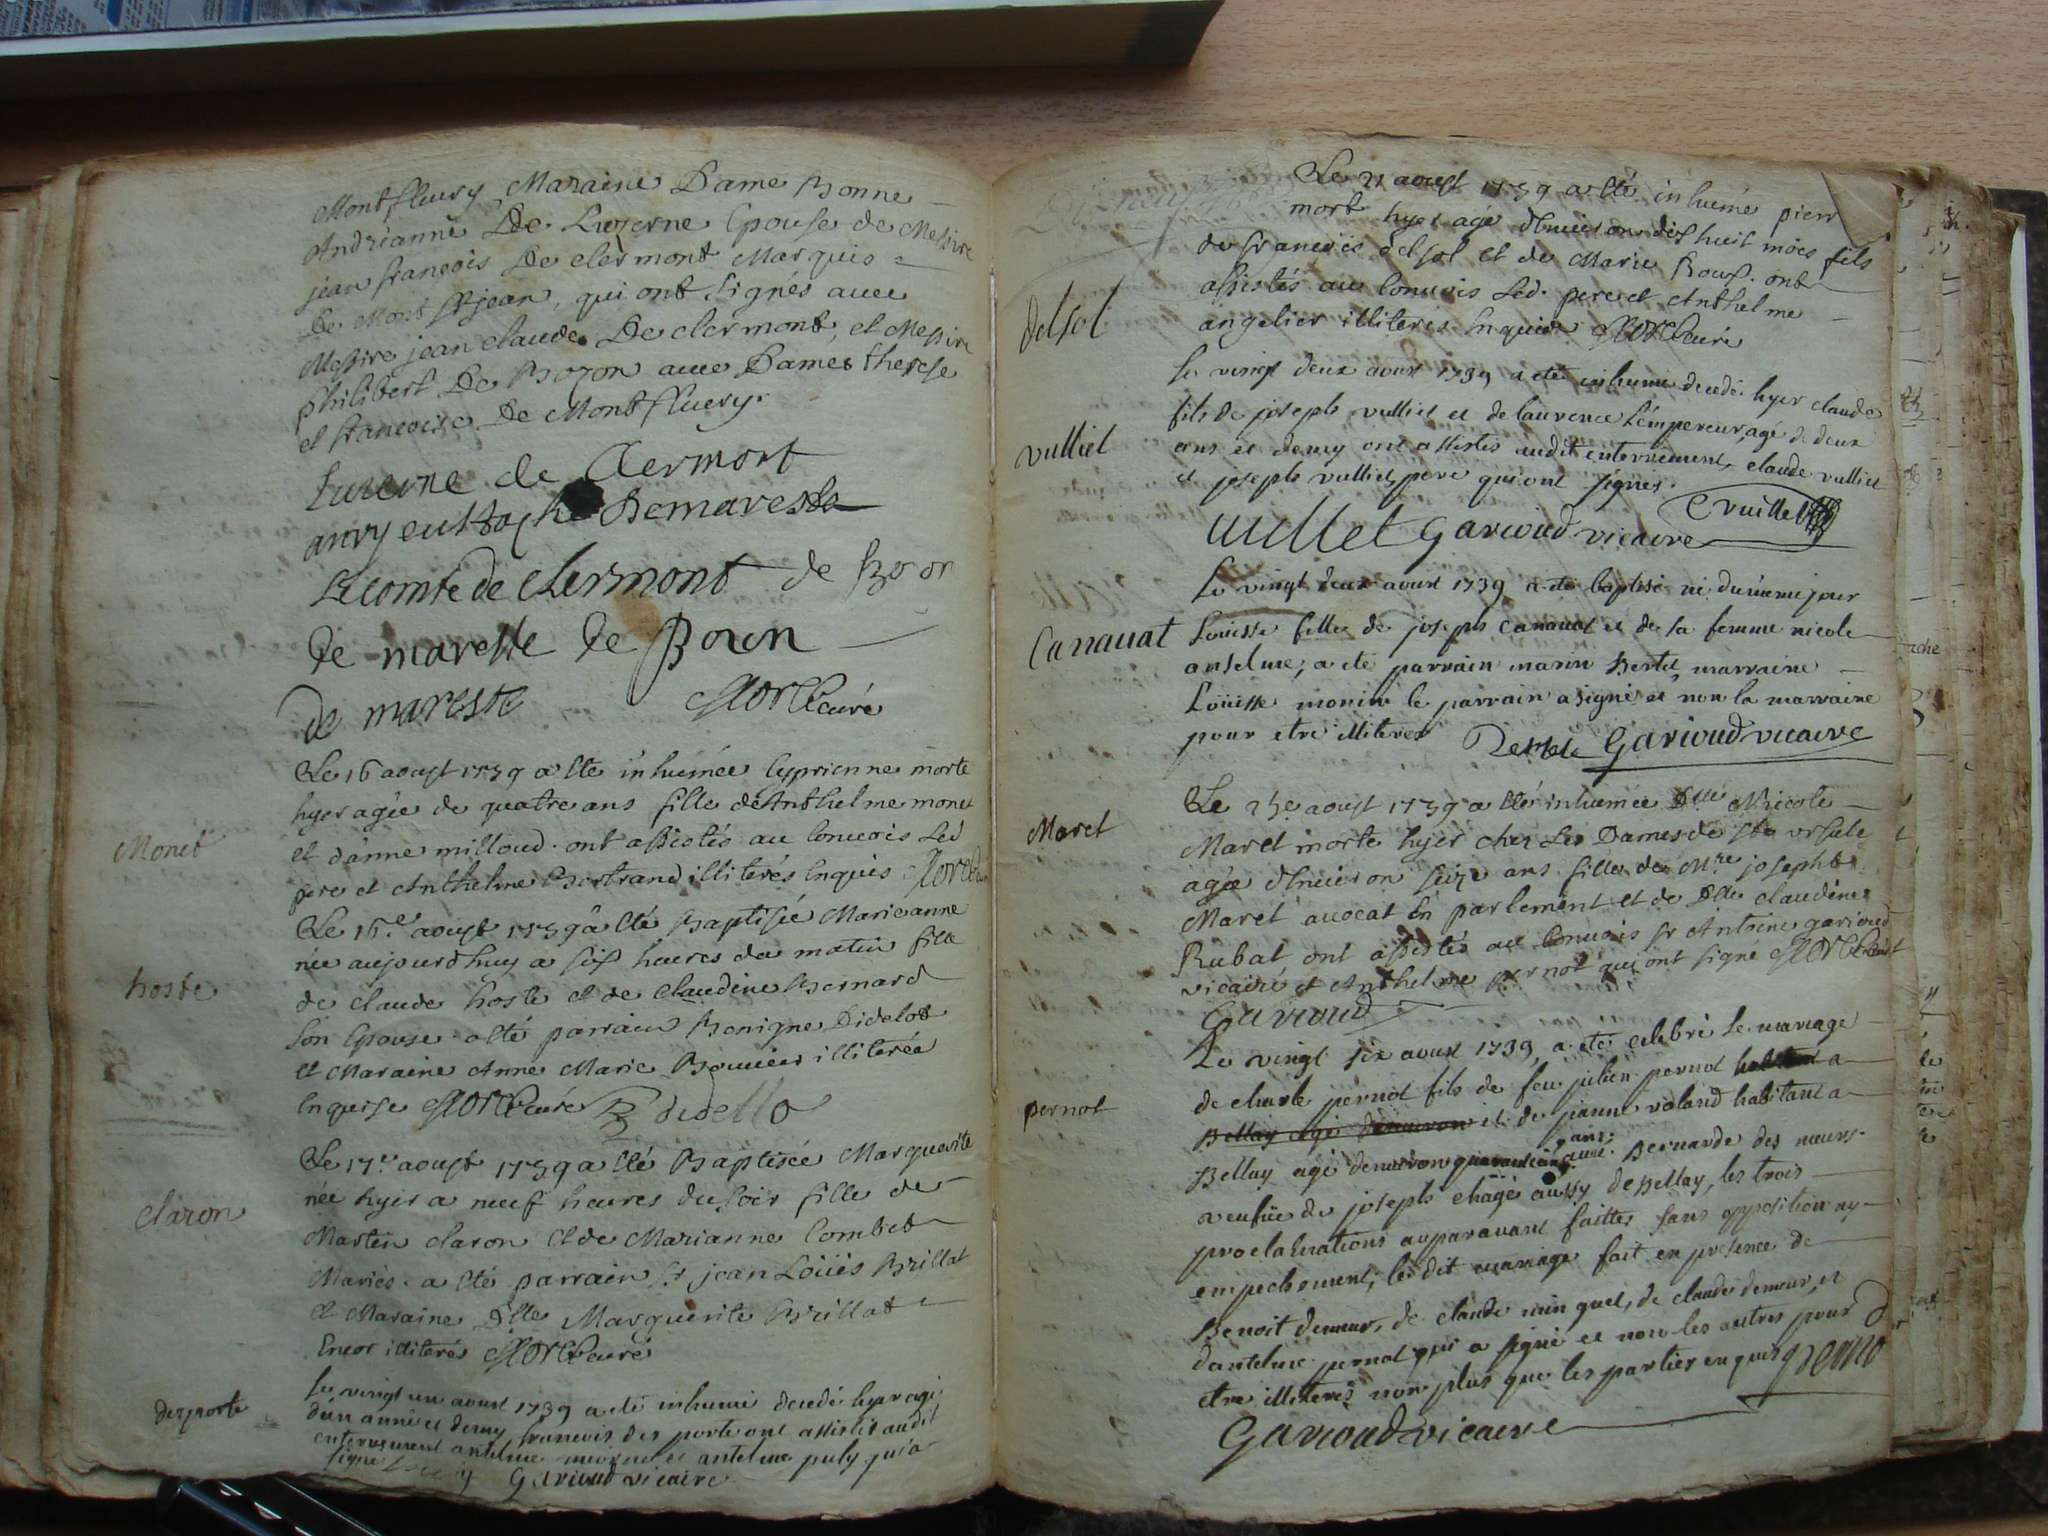 Montfleury Maraine Dame Bonne
Andrianne De Luzerne Epouse de Messire
jean francois De clermont Marquis
De Mont St jean, qui ont signés avec
Messire jean claude De clermont, et Messire
philibert De Bozon avec Dames therese
et francoise De Montfluery.
Luzerne de Clermont
Demareste
Le comte de Clermont de Bozon
De mareste de Bozon
de mareste curé
Monet
Le 16 aoust 1739 a Eté inhumée Cyprienne morte
hyer agée de quatre ans fille de Anthelme monet
et d'anne milloud. ont assistés au Convois Led
pere et Anthelme Bertrand illiterés Enquis
hoste
Le 16.e aoust 1739 a Eté Baptisée Marieanne
née aujourdhuy a six heures du matin fille
de claude hoste et de claudine Bernard
son Epouse a Eté parrain Benigne Didelot
et Maraine Anne Marie Bouvier illiterée
Enquise curé B didello
Claron
Le 17.e aoust 1739 a Eté Baptisée Marguerite
née hyer a neuf heures du soir fille de
Martin Claron et de Marianne Combet
Mariés. a Eté parrain Sr jean Loüis Brillat
et Maraine Dlle Marguerite Brillat
illiterés curé
desporte
Le vingt un aoust 1739 a eté inhumé decedé hyer agé
d'un anné et demy francois des porte ont assisté audit
enterrement antelme et antelme puly qui a
signé Garioud vicaire
Le 21 aoust 1739 a Eté inhumé pierr
mort hyer agé d'Environ dix huit mois fils
de francois delsol et de Marie Roux. ont
assistés au Convois Led. pere et Anthelme
angelier illiterés Enquis curé
delsol
Le vingt deux aoust 1739 a eté inhumé decedé hyer claude
fils de joseph vulliet et de laurence Lempereur, agé de deux
ans et demy ont assistés audit enterrement, claude vulliet
et joseph vulliet, pere qui ont signés.
vulliet
vulliet Garioud vicaire C vuillet
Le vingt deux aoust 1739 a eté baptisé né du même jour
Louisse fille de joseph canauat et de sa femme nicole
anselme; a eté parrain marin Bertet, marraine
Loüisse monin le parrain a signé et non la marraine
pour etre illiteree Garioud vicaire
Canauat
Le 25.e aoust 1739 a Eté inhumée Dlle Nicole
Maret morte hyer chez Les Dames de Ste Ursule
agée d'Environ seize ans fille de Mre joseph
Maret avocat En parlement et de Dlle claudine
Rubat ont assistés au Convois Sr Antoine garioud
vicaire et Anthelme pernot qui ont signé
Maret
Garioud
Le vingt six aoust 1739, a eté celebré le mariage
de charle pernot fils de feu julien pernot habitant a
Bellay agé d'environ et de jeanne roland habitant a
Bellay agé d'environ quarante ans; avec Bernarde des meurs
veufüe de joseph chagé aussy de Bellay, les trois
proclamations auparavant faittes sans opposition ny
empechement; ledit mariage fait en presence de
Benoit demeur, de claude minguet, de claude demeur, et
d'antelme pernot qui a signé et non les autres pour
etre illiteres non plus que les parties enquis perno
pernot
Garioud vicaire